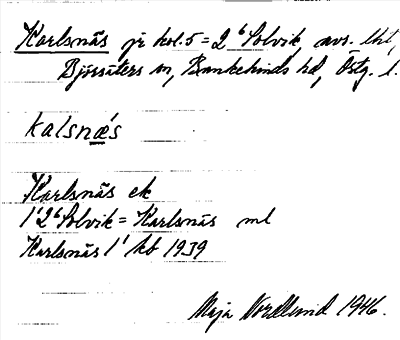 Karlsnäs jr kol. 5 = 2⁶ Solvik, avs. lht,
Björsäters sn, Bankekinds hd, Östg. l.
kalsnæs
Karlsnäs ek
1¹2⁶ Solvik = Karlsnäs ml
Karlsnäs 1¹ kb 1939
Maja Nordlund 1946.